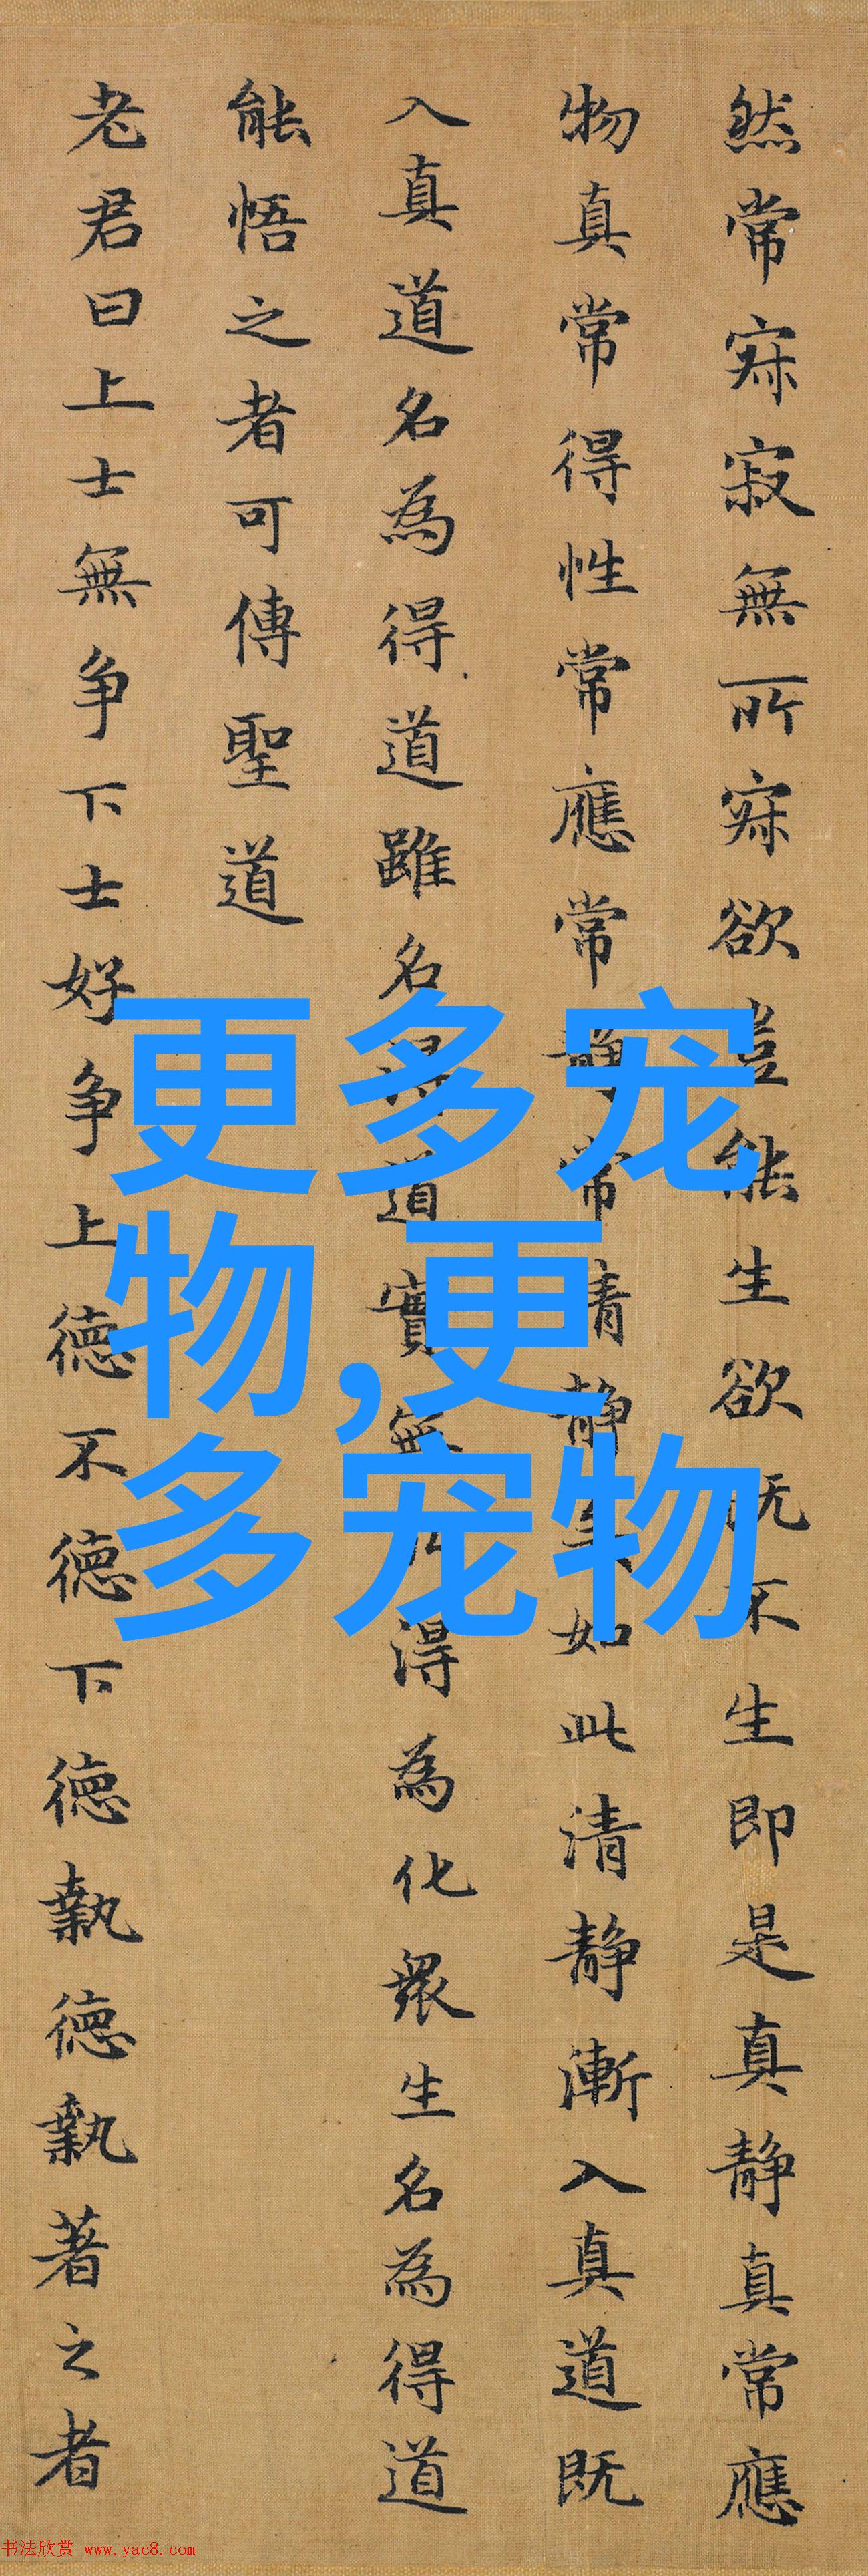 然常寂寂無所寂欲豈能生欲既不生即是真静真常應
物真常得性常應常静常清静矣如此清静漸入真道既
入真道名為得道雖名得道實無所得為化衆生名為得道
能悟之者可傳聖道
老君曰上士無争下士好争上德不德下德執德執著之者
更多宠
物,更
多宠物
书法欣赏 www.yac8.com